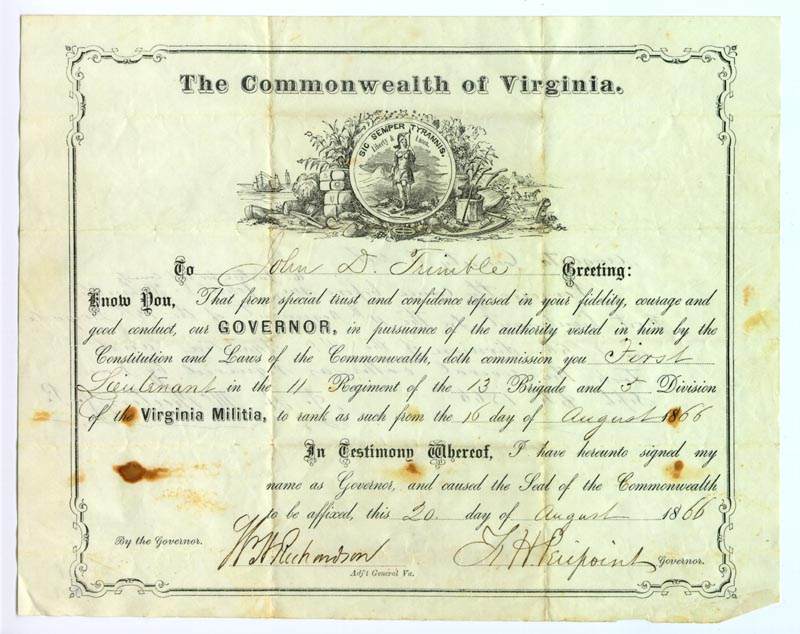 The Commonwealth of Virginia.
SIC SEMPER TYRANNIS.
Liberty & Union
To John D. Trimble Greeting:
Know You, That from special trust and confidence reposed in your fidelity, courage and
good conduct, our GOVERNOR, in pursuance of the authority vested in him by the
Constitution and Laws of the Commonwealth, doth commission you First
Lieutenant in the 11 Regiment of the 13 Brigade and 5 Division
of the Virginia Militia, to rank as such from the 16 day of August 1866
In Testimony Whereof, I have hereunto signed my
name as Governor, and caused the Seal of the Commonwealth
to be affixed, this 20 day of August 1866
By the Governor. W H Richardson F H Peirpoint Governor.
Adj't General Va.